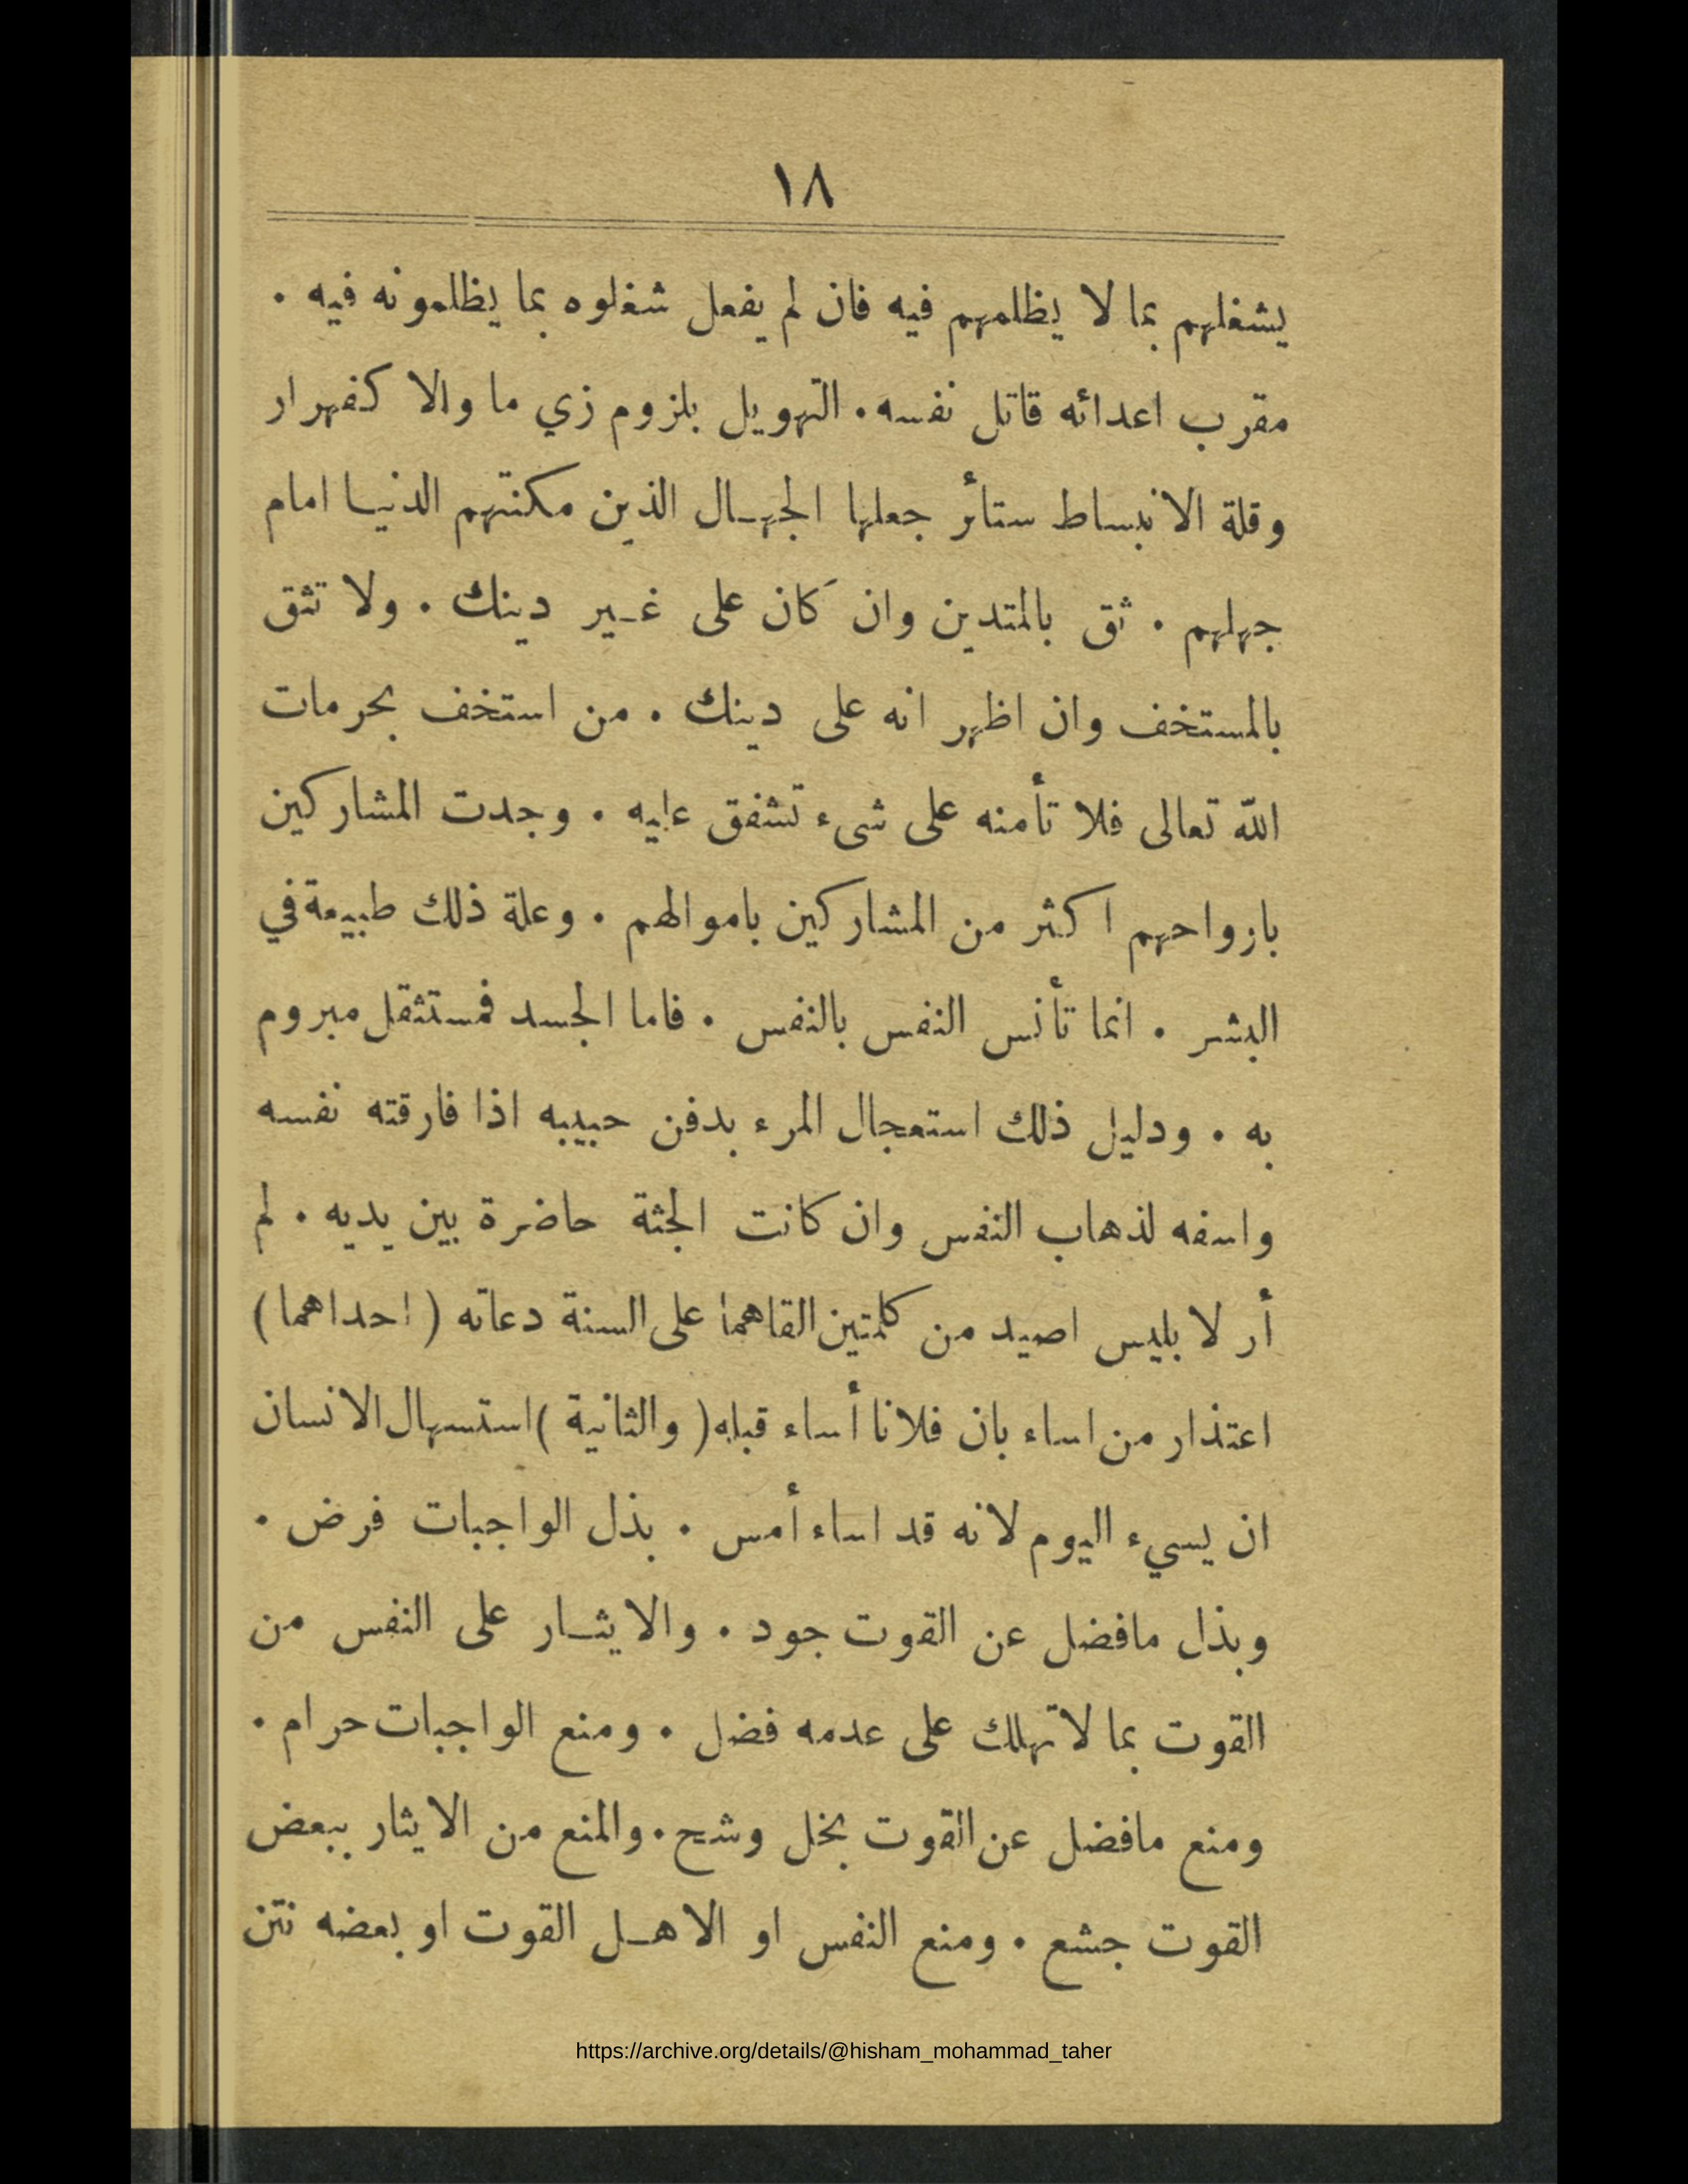 ١٨
يشغلهم بما لا يظلمهم فيه فان لم يفعل شغلوه بما يظلمونه فيه .
مقرب اعدائه قاتل نفسه . التهويل بلزوم زي ما والا كفهرار
وقلة الانبساط ستائر جعلها الجهـال الذين مكنتهم الدنيـا امام
جهلهم . ثق بالمتدين وان كان على غـير دينك . ولا تثق
بالمستخف وان اظهر انه على دينك . من استخف بحرمات
الله تعالى فلا تأمنه على شىء تشفق عليه . وجدت المشاركين
بازواحهم اكثر من المشاركين باموالهم . وعلة ذلك طبيعة في
البشر . انما تأنس النفس بالنفس . فاما الجسد فمستثقل مبروم
به . ودليل ذلك استعجال المرء بدفن حبيبه اذا فارقته نفسه
واسفه لذهاب النفس وان كانت الجثة حاضرة بين يديه . لم
أر لابليس اصيد من كلمتين القاهما على السنة دعاته ( احداهما )
اعتذار من اساء بان فلانا أساء قبله ( والثانية ) استسهال الانسان
ان يسيء اليوم لانه قد اساء أمس . بذل الواجبات فرض .
وبذل مافضل عن القوت جود . والايثـار على النفس من
القوت بما لاتهلك على عدمه فضل . ومنع الواجبات حرام .
ومنع مافضل عن القوت بخل وشح . والمنع من الايثار ببعض
القوت جشع . ومنع النفس او الاهـل القوت او بعضه نتن
https://archive.org/details/@hisham_mohammad_taher